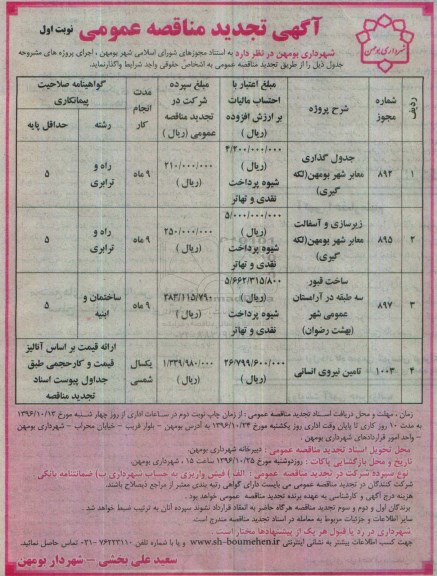 آگهی تجدید مناقصه عمومی نوبت اول
شهرداری بومهن
شهرداری بومهن در نظر دارد به استناد مجوزهای شورای اسلامی شهر بومهن ، اجرای پروژه های مشروحه
جدول ذیل را از طریق تجدید مناقصه عمومی به اشخاص حقوقی واجد شرایط واگذار نماید.
ردیف
شماره مجوز
شرح پروژه
مبلغ اعتبار با احتساب مالیات بر ارزش افزوده (ریال )
مبلغ سپرده شرکت در تجدید مناقصه عمومی (ریال )
مدت انجام کار
گواهینامه صلاحیت پیمانکاری
رشته
حداقل پایه
۱
۸۹۲
جدول گذاری معابر شهر بومهن(لکه گیری)
۴/۲۰۰/۰۰۰/۰۰۰ (ریال ) شیوه پرداخت نقدی و تهاتر
۲۱۰/۰۰۰/۰۰۰ (ریال )
۹ ماه
راه و ترابری
۵
۲
۸۹۵
زیرسازی و آسفالت معابر شهر بومهن(لکه گیری)
۵/۰۰۰/۰۰۰/۰۰۰ (ریال ) شیوه پرداخت نقدی و تهاتر
۲۵۰/۰۰۰/۰۰۰ (ریال )
۹ ماه
راه و ترابری
۵
۳
۸۹۷
ساخت قبور سه طبقه در آرامستان عمومی شهر (بهشت رضوان)
۵/۶۶۲/۳۱۵/۸۰۰ (ریال ) شیوه پرداخت نقدی و تهاتر
۲۸۳/۱۱۵/۷۹۰ (ریال )
۹ ماه
ساختمان و ابنیه
۵
۴
۱۰۰۳
تامین نیروی انسانی
۲۶/۷۹۹/۶۰۰/۰۰۰ (ریال )
۱/۳۳۹/۹۸۰/۰۰۰ (ریال )
یکسال شمسی
ارائه قیمت بر اساس آنالیز قیمت و کارحجمی طبق جداول پیوست اسناد تجدید مناقصه
زمان ، مهلت و محل دریافت اسناد تجدید مناقصه عمومی : از زمان چاپ نوبت دوم در ساعات اداری از روز چهار شنبه مورخ ۱۳۹۶/۱۰/۱۳
به مدت ۱۰ روز کاری تا پایان وقت اداری روز یکشنبه مورخ ۱۳۹۶/۱۰/۲۴ به آدرس بومهن – بلوار غریب – خیابان محراب – شهرداری بومهن
– واحد امور قراردادهای شهرداری بومهن .
محل تحویل اسناد تجدید مناقصه عمومی : دبیرخانه شهرداری بومهن.
تاریخ و محل بازگشایی پاکات : روز دوشنبه مورخ ۱۳۹۶/۱۰/۲۵ ساعت ۱۵ ، شهرداری بومهن.
نوع سپرده شرکت در تجدید مناقصه عمومی : الف ) فیش واریزی به حساب شهرداری ب) ضمانتنامه بانکی
شرکت کنندگان در تجدید مناقصه عمومی می بایست دارای گواهی رتبه بندی معتبر از مراجع ذیصلاح باشند.
هزینه درج آگهی و کارشناسی به عهده برنده تجدید مناقصه عمومی خواهد بود .
برندگان اول و دوم و سوم تجدید مناقصه هرگاه حاضر به انعقاد قرارداد نشوند سپرده آنان به ترتیب ضبط خواهد شد .
سایر اطلاعات و جزئیات مربوط به معامله در اسناد تجدید مناقصه مندرج است.
شهرداری در رد یا قبول هر یک از پیشنهادها مختار است
جهت کسب اطلاعات بیشتر به نشانی اینترنتی www.sh-boumehen.ir و یا با شماره تلفن ۷۶۲۲۳۱۱۰ -۰۲۱ تماس حاصل نمائید.
سعید علی بخشی – شهردار بومهن